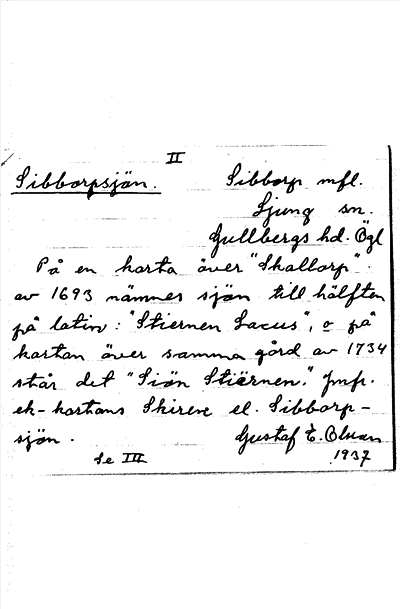 II
Sibborpsjön. Sibborp mfl.
Ljung sn.
Gullbergs hd. Ögl
På en karta över "Skallorp".
av 1693 nämnes sjön till hälften
på latin: "Stiernen Lacus", o på
kartan över samma gård av 1734
står det "Siön Stiernen." Jmfr.
ek-kartans Skiren el. Sibborp-
sjön. Gustaf E. Olsson
Se III 1937